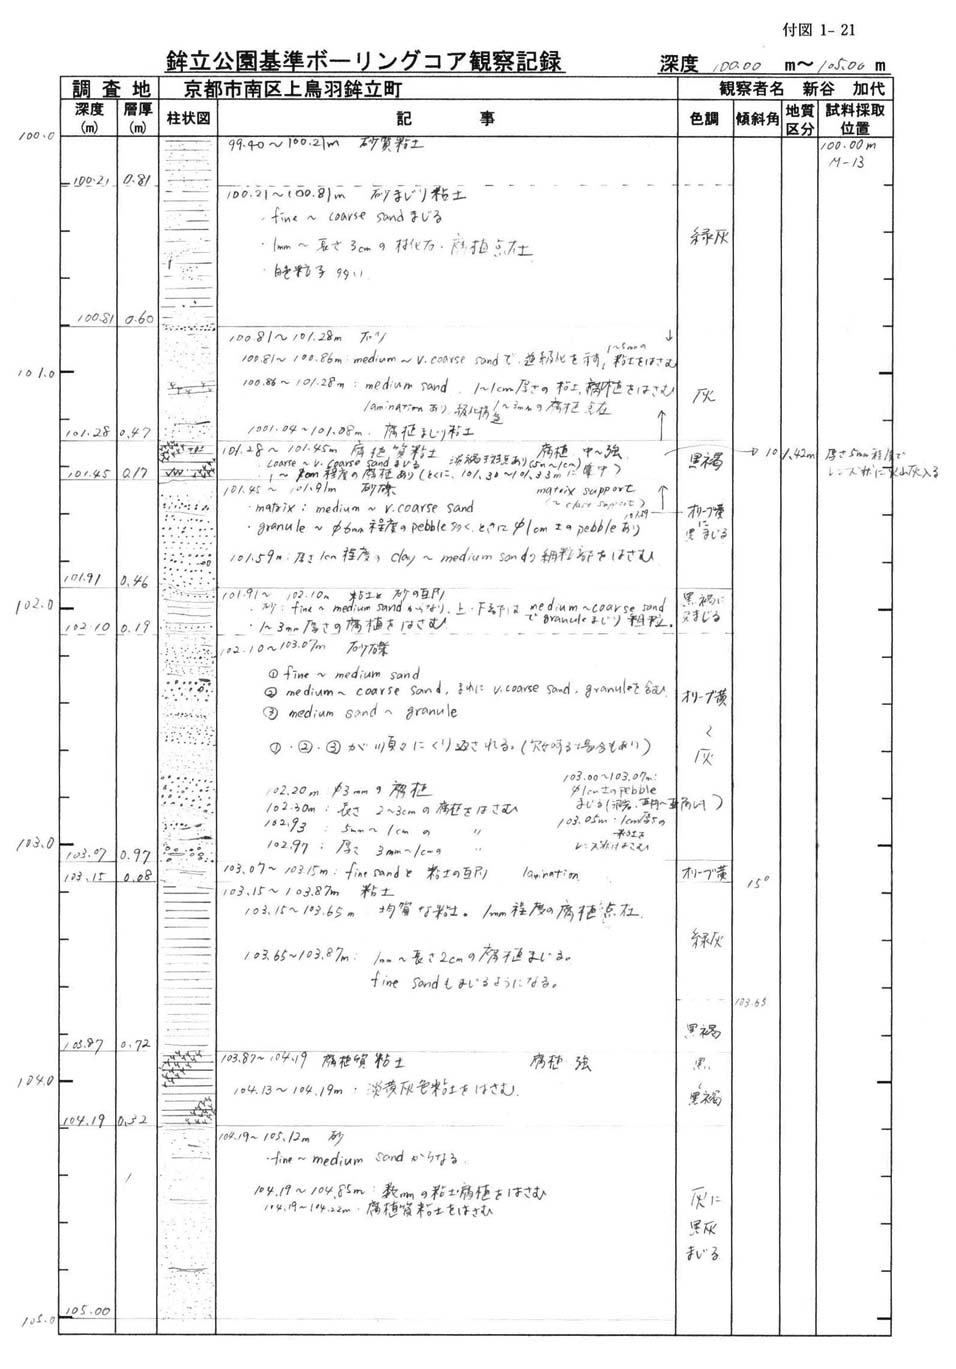 付図 1- 21
鉾立公園基準ボーリングコア観察記録 深度 100.00 m～ 105.00 m
調査地 京都市南区上鳥羽鉾立町 観察者名 新谷 加代
深度(m) 層厚(m) 柱状図 記事 色調 傾斜角 地質区分 試料採取位置
100.0 99.40～100.21m 砂質粘土 100.00m
M-13
100.21 0.81
100.21～100.81m 砂まじり粘土
・fine～coarse sandまじる
緑灰
・1mm～長さ3cmの材化石・腐植点在
100.81 0.60
100.81～101.28m 砂
100.81～100.86m: medium～v.coarse sandで、逆級化を示す, 1～5mmの粘土をはさむ
101.0
100.86～101.28m: medium sand. 1～1cm厚さの粘土,腐植をはさむ
灰
laminationあり 1～3mmの腐植点在
1001.04～101.08m. 腐植まじり粘土
101.28 0.47
101.28～101.45m 腐植質粘土 腐植 中～強
黒褐
101.42m 厚さ5mm程度でレンズ状に火山灰入る
・coarse～v.coarse sandまじる
程度の腐植あり(とくに、101.30～101.33mに集中)
101.45 0.17
101.45～101.91m 砂礫 matrix support
(～clast support)
・matrix: medium～v.coarse sand
オリーブ黄に黒まじる
・granule～φ6mm程度のpebble多く、ときにφ1cm±のpebbleあり
101.59m:厚さ1cm程度のclay～medium sandの細粒部をはさむ
101.91 0.46
101.91～102.10m 粘土と砂の互層
102.0
・砂: fine～medium sandからなり、上・下部は medium～coarse sandでgranuleまじり粗粒。
・1～3mm厚さの腐植をはさむ
102.10 0.19
102.10～103.07m 砂礫
① fine～medium sand
② medium～coarse sand, まれに v.coarse sand, granuleを含む
オリーブ黄
③ medium sand～granule
～
①・②・③が順々にくり返される。(欠如する場合もあり)
灰
102.20m:φ3mmの腐植
102.30m:長さ 2～3cmの腐植をはさむ
102.93 : 5mm～1cmの 〃
102.97:厚さ 3mm～1cmの 〃
103.00～103.07m:
φ1cm±のpebble
103.05m・1cm厚さの
粘土を
レンズ状にはさむ
103.0
103.07 0.97
103.07～103.15m: fine sandと粘土の互層 lamination
オリーブ黄
103.15 0.08
15°
103.15～103.87m 粘土
103.15～103.65m 均質な粘土。1mm程度の腐植点在.
緑灰
103.65～103.87m: 1mm～長さ2cmの腐植まじる。
fine sandもまじるようになる。
103.65
黒褐
103.87 0.72
103.87～104.19 腐植質粘土 腐植 強
黒
～
黒褐
104.0
104.13～104.19m:淡黄灰色粘土をはさむ.
104.19 0.32
104.19～105.12m 砂
・fine～medium sandからなる.
104.19～104.85m:数mmの粘土・腐植をはさむ
104.19～104.22m・腐植質粘土をはさむ
灰に
黒灰
まじる
105.00
105.0